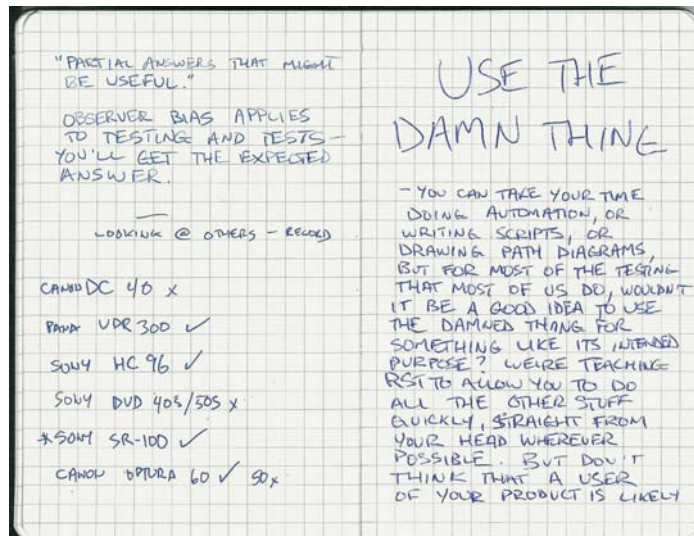 "PARTIAL ANSWERS THAT MIGHT
BE USEFUL."
OBSERVER BIAS APPLIES
TO TESTING AND TESTS –
YOU'LL GET THE EXPECTED
ANSWER.
LOOKING @ OTHERS – RECORD
CANON DC 40 x
PANA VDR 300 ✓
SONY HC 96 ✓
SONY DVD 405/505 x
*SONY SR-100 ✓
CANON OPTURA 60 ✓ 50 x
USE THE
DAMN THING
– YOU CAN TAKE YOUR TIME
DOING AUTOMATION, OR
WRITING SCRIPTS, OR
DRAWING PATH DIAGRAMS,
BUT FOR MOST OF THE TESTING
THAT MOST OF US DO, WOULDN'T
IT BE A GOOD IDEA TO USE
THE DAMNED THING FOR
SOMETHING LIKE ITS INTENDED
PURPOSE? WE'RE TEACHING
RST TO ALLOW YOU TO DO
ALL THE OTHER STUFF
QUICKLY, STRAIGHT FROM
YOUR HEAD WHEREVER
POSSIBLE. BUT DON'T
THINK THAT A USER
OF YOUR PRODUCT IS LIKELY